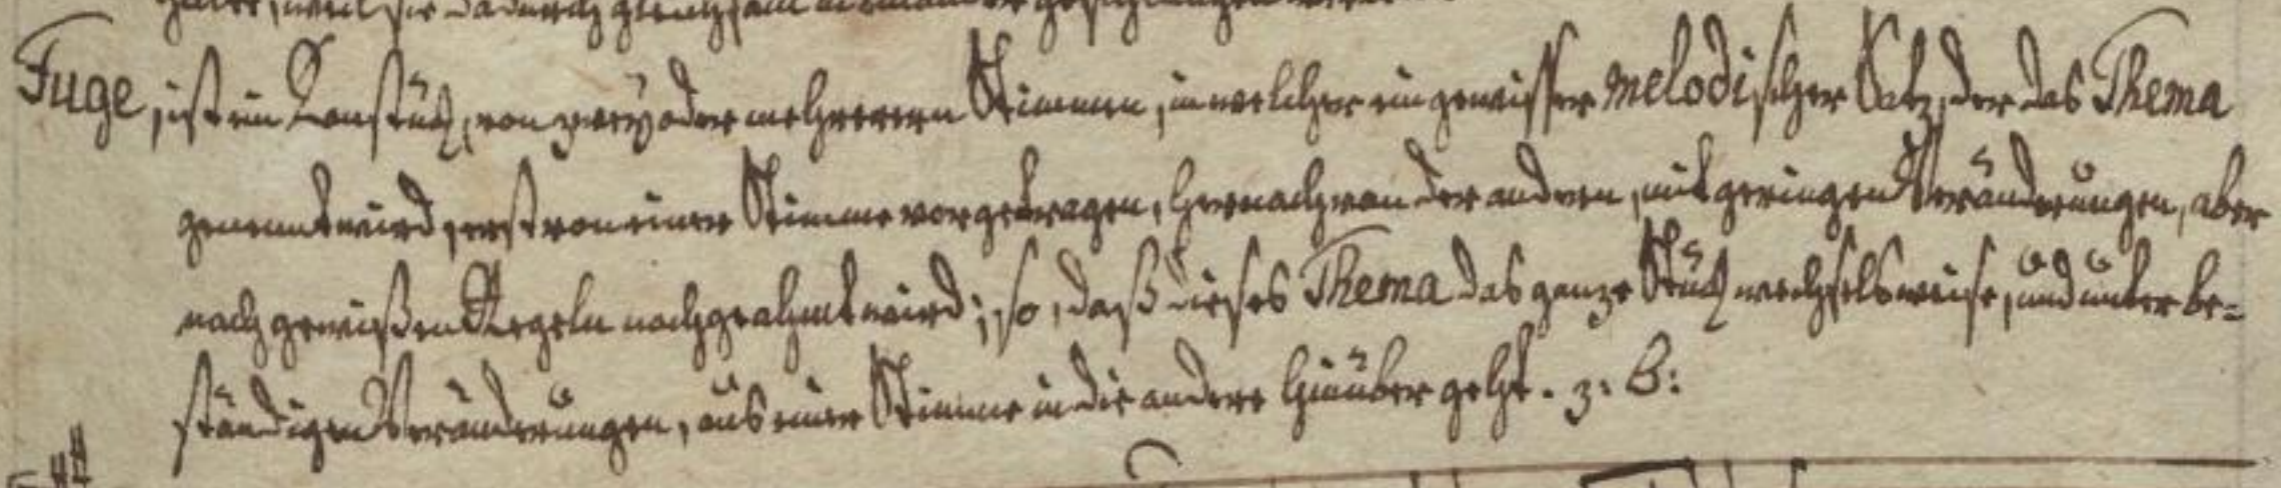 weil sie dadurch gleichsam
Fuge, ist ein Tonstück, von zwey oder mehreren Stimmen, in welcher ein gewisser melodischer Satz, der das Thema
genennt wird, erst von einer Stimme vorgetragen, hernach von der andren, mit geringen Veränderungen, aber
nach gewißen Regeln nachgeahmt wird; so, daß dieses Thema das ganze Stück wechselsweise, und unter be=
ständigen Veränderungen, aus einer Stimme in die andere hinüber geht. z: B: